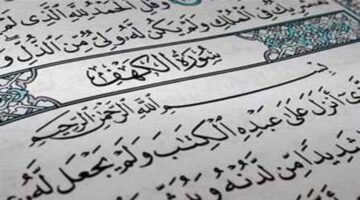 وَقُلِ ٱلْحَمْدُ لِلَّهِ ٱلَّذِي لَمْ
فِي ٱلْمُلْكِ وَلَمْ يَكُن لَّهُۥ وَلِيٌّ مِّنَ ٱلذُّلِّ وَ
سُورَةُ ٱلْكَهْفِ
بِسْمِ ٱللَّهِ ٱلرَّحْمَٰنِ ٱلرَّحِيمِ
أَنزَلَ عَلَىٰ عَبْدِهِ ٱلْكِتَٰبَ وَلَمْ يَجْعَل لَّهُۥ
مِّن لَّدُنْهُ